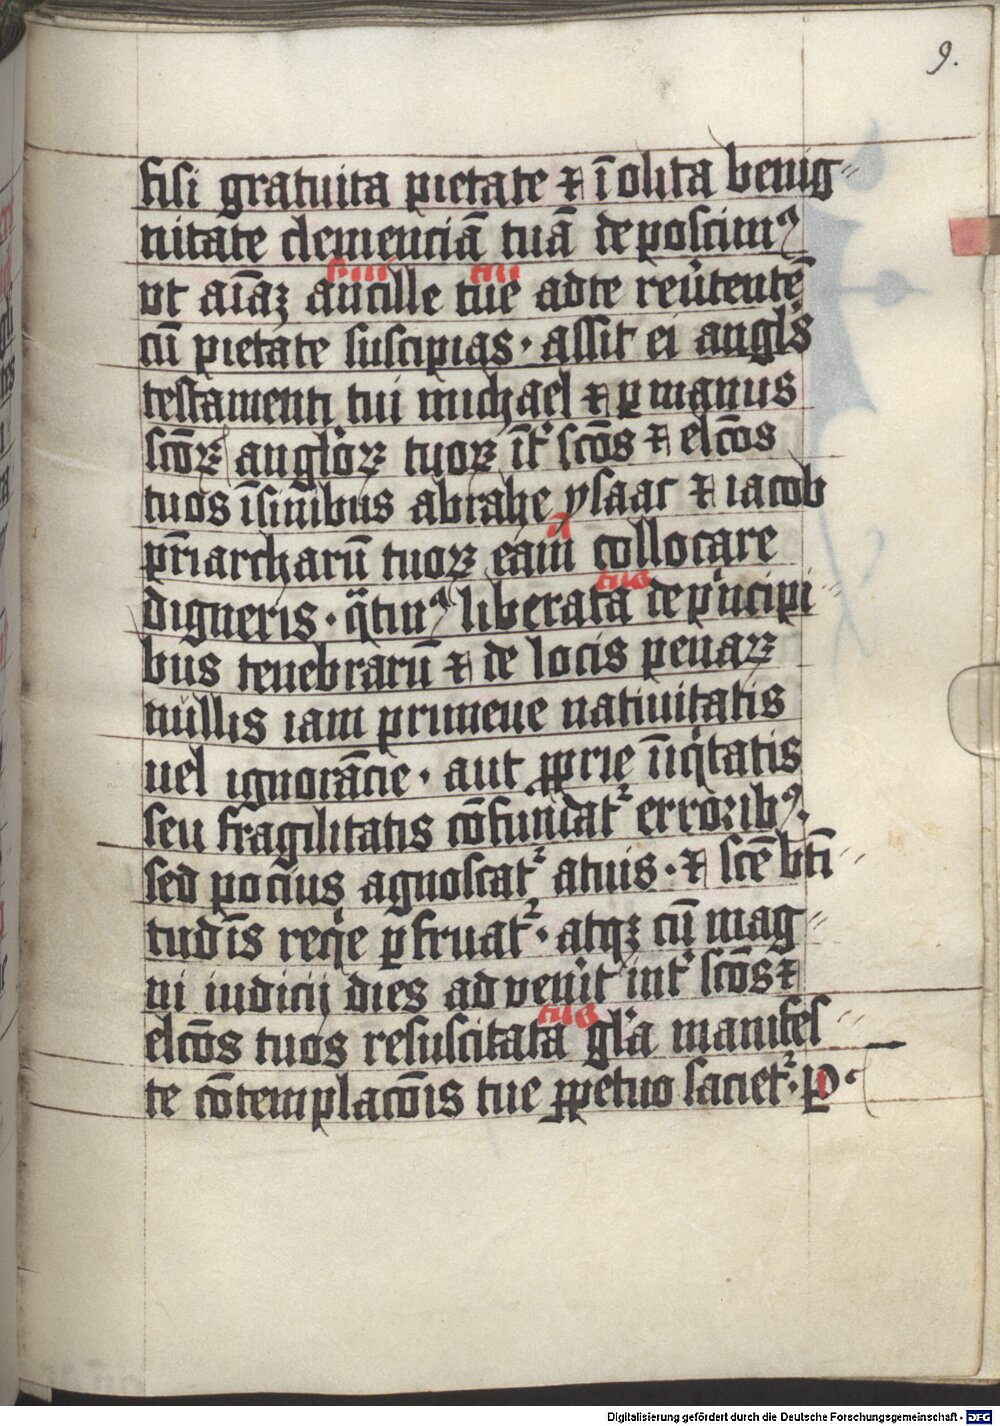 9.
fisi gratuita pietate ⁊ īsolita benig
nitate clemenciā tuā deposcimꝰ
ut aīaꝫ ancille tue ad te reūtentē
famuli tui
cū pietate suscipias · assit ei angl's
testamenti tui michael ⁊ ꝑ manus
scōꝝ anglōꝝ tuoꝝ īt' scōs ⁊ elcōs
tuos ī sinibus abrahe ysaac ⁊ iacob
pr̄iarcharū tuoꝝ eam collocare
digneris · q̄tinꝰ liberata de p'ncipi
tus
bus tenebrarū ⁊ de locis penaꝝ
nullis iam primeue natiuitatis
uel ignorācie · aut ꝓprie īiq'tatis
seu fragilitatis cōfundat' erroribꝰ ·
sed pocius agnoscat' a tuis · ⁊ scē bt̄i
tudīs req'e ꝑfruat' · atqꝫ cū mag
ni iudicij dies aduen'it int' scōs ⁊
elcōs tuos resuscitata gl'a manifes
tus
te cōtemplacōis tue ꝑpetuo saciet' · ꝑ ·
Digitalisierung gefördert durch die Deutsche Forschungsgemeinschaft - DFG